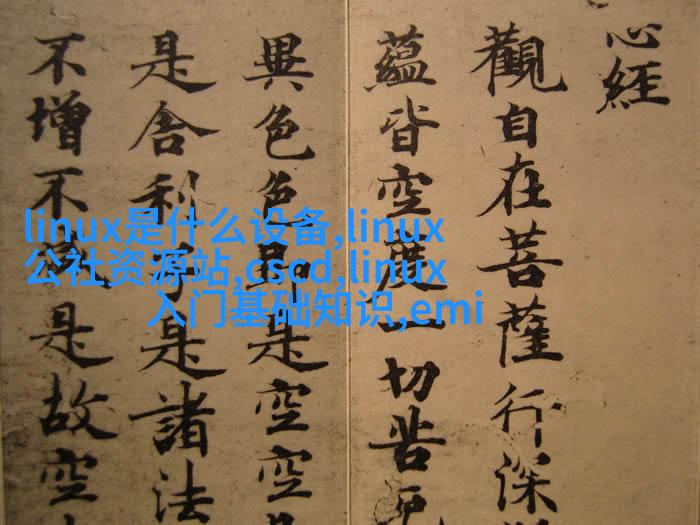 心經
觀自在菩薩行深
蘊皆空度一切苦厄
異色色即是空空
是舍利子是諸法
不增不減是故空
linux是什么设备,linux
公社资源站,cscd,linux
入门基础知识,emi